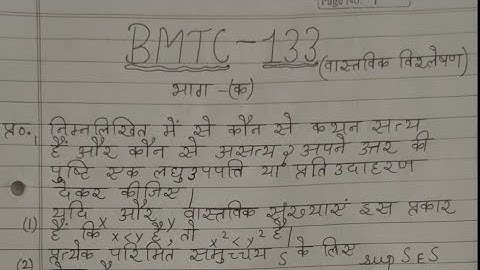 Page No. 1
BMTC-133 (वास्तविक विश्लेषण)
भाग -(क)
प्र०1 निम्नलिखित में से कौन से कथन सत्य
हैं और कौन से असत्य? अपने उत्तर की
पुष्टि एक लघुउपपत्ति या प्रतिउदाहरण
देकर कीजिए।
(1) यदि x और y वास्तविक संख्याएं इस प्रकार
हैं कि x<y है, तो x²<y² है।
(2) प्रत्येक परिमित समुच्चय S के लिए sup S ∈ S